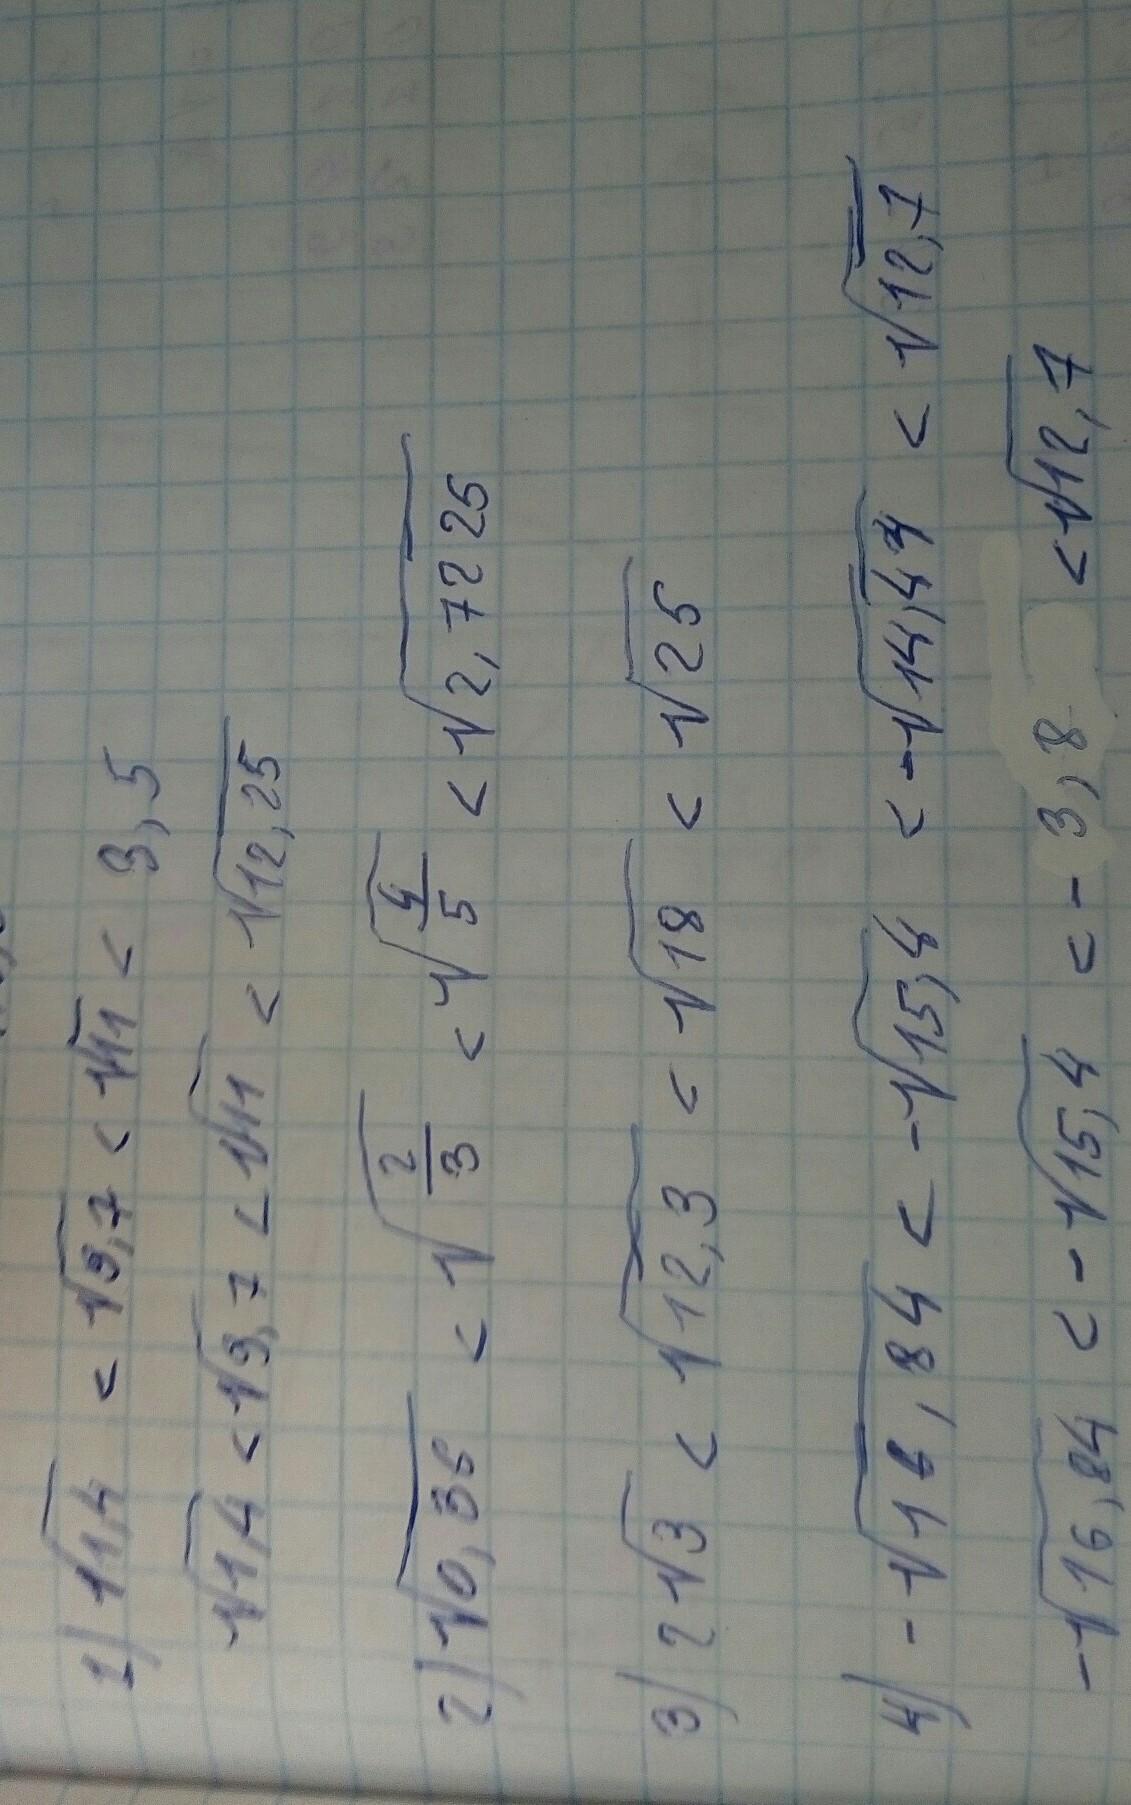 1) √1,4 < √9,7 < √11 < 3,5
√1,4 < √9,7 < √11 < √12,25
2) √0,36 < √2/3 < √4/5 < √2,7225
3) 2√3 < √12,3 < √18 < √25
4) -√16,84 < -√15,4 < -√14,44 < √12,7
-√16,84 < -√15,4 < -3,8 < √12,7